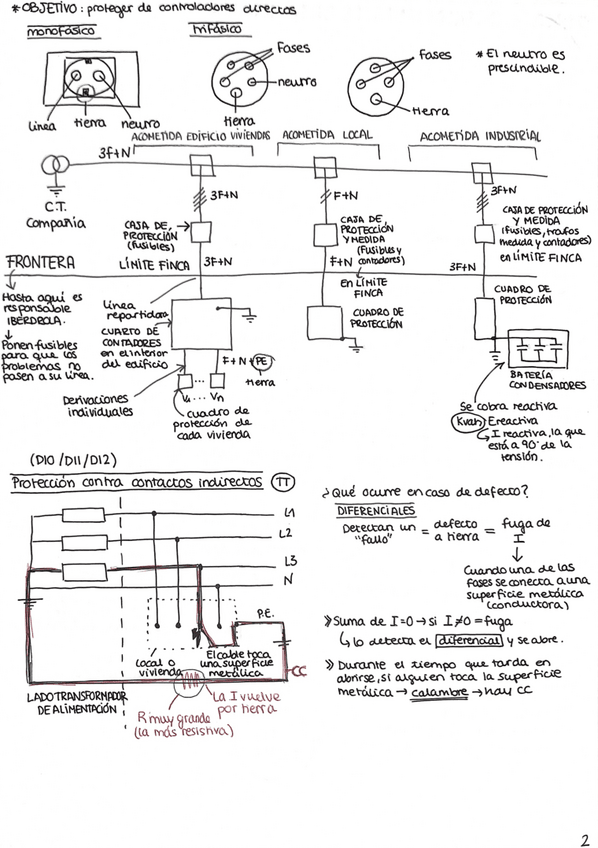 * OBJETIVO: proteger de controladores directos
monofásico
trifásico
Fases
neutro
tierra
Fases
tierra
* El neutro es
prescindible.
línea
tierra
neutro
ACOMETIDA EDIFICIO VIVIENDAS
ACOMETIDA LOCAL
ACOMETIDA INDUSTRIAL
3F+N
C.T.
Compañia
3F+N
F+N
3F+N
CAJA DE
PROTECCIÓN
(fusibles)
CAJA DE
PROTECCIÓN
Y MEDIDA
(fusibles y
contadores)
CAJA DE PROTECCIÓN
Y MEDIDA
(fusibles, trafos
medida y contadores)
en LÍMITE FINCA
FRONTERA
LÍMITE FINCA
3F+N
F+N
EN LÍMITE
FINCA
3F+N
Hasta aquí es
responsable
IBERDROLA.
Ponen fusibles
para que los
problemas no
pasen a su línea.
Línea
repartidora
CUARTO DE
CONTADORES
en el interior
del edificio
F+N+PE
tierra
Derivaciones
individuales
V1 ... Vn
cuadro de
protección de
cada vivienda
CUADRO DE
PROTECCIÓN
CUADRO DE
PROTECCIÓN
BATERÍA
CONDENSADORES
Se cobra reactiva
Kvarh Ereactiva
I reactiva, la que
está a 90° de la
tensión.
(D10/D11/D12)
Protección contra contactos indirectos TT
L1
L2
L3
N
P.E.
local o
vivienda
El cable toca
una superficie
metálica
CC
LADO TRANSFORMADOR
DE ALIMENTACIÓN
R muy grande
(la más resistiva)
La I vuelve
por tierra
¿Qué ocurre en caso de defecto?
DIFERENCIALES
Detectan un
"fallo"
= defecto
a tierra
= fuga de
I
Cuando una de las
fases se conecta a una
superficie metálica
(conductora)
» Suma de I=0 → si I≠0 = fuga
lo detecta el diferencial y se abre.
» Durante el tiempo que tarda en
abrirse, si alguien toca la superficie
metálica → calambre → hay CC
2